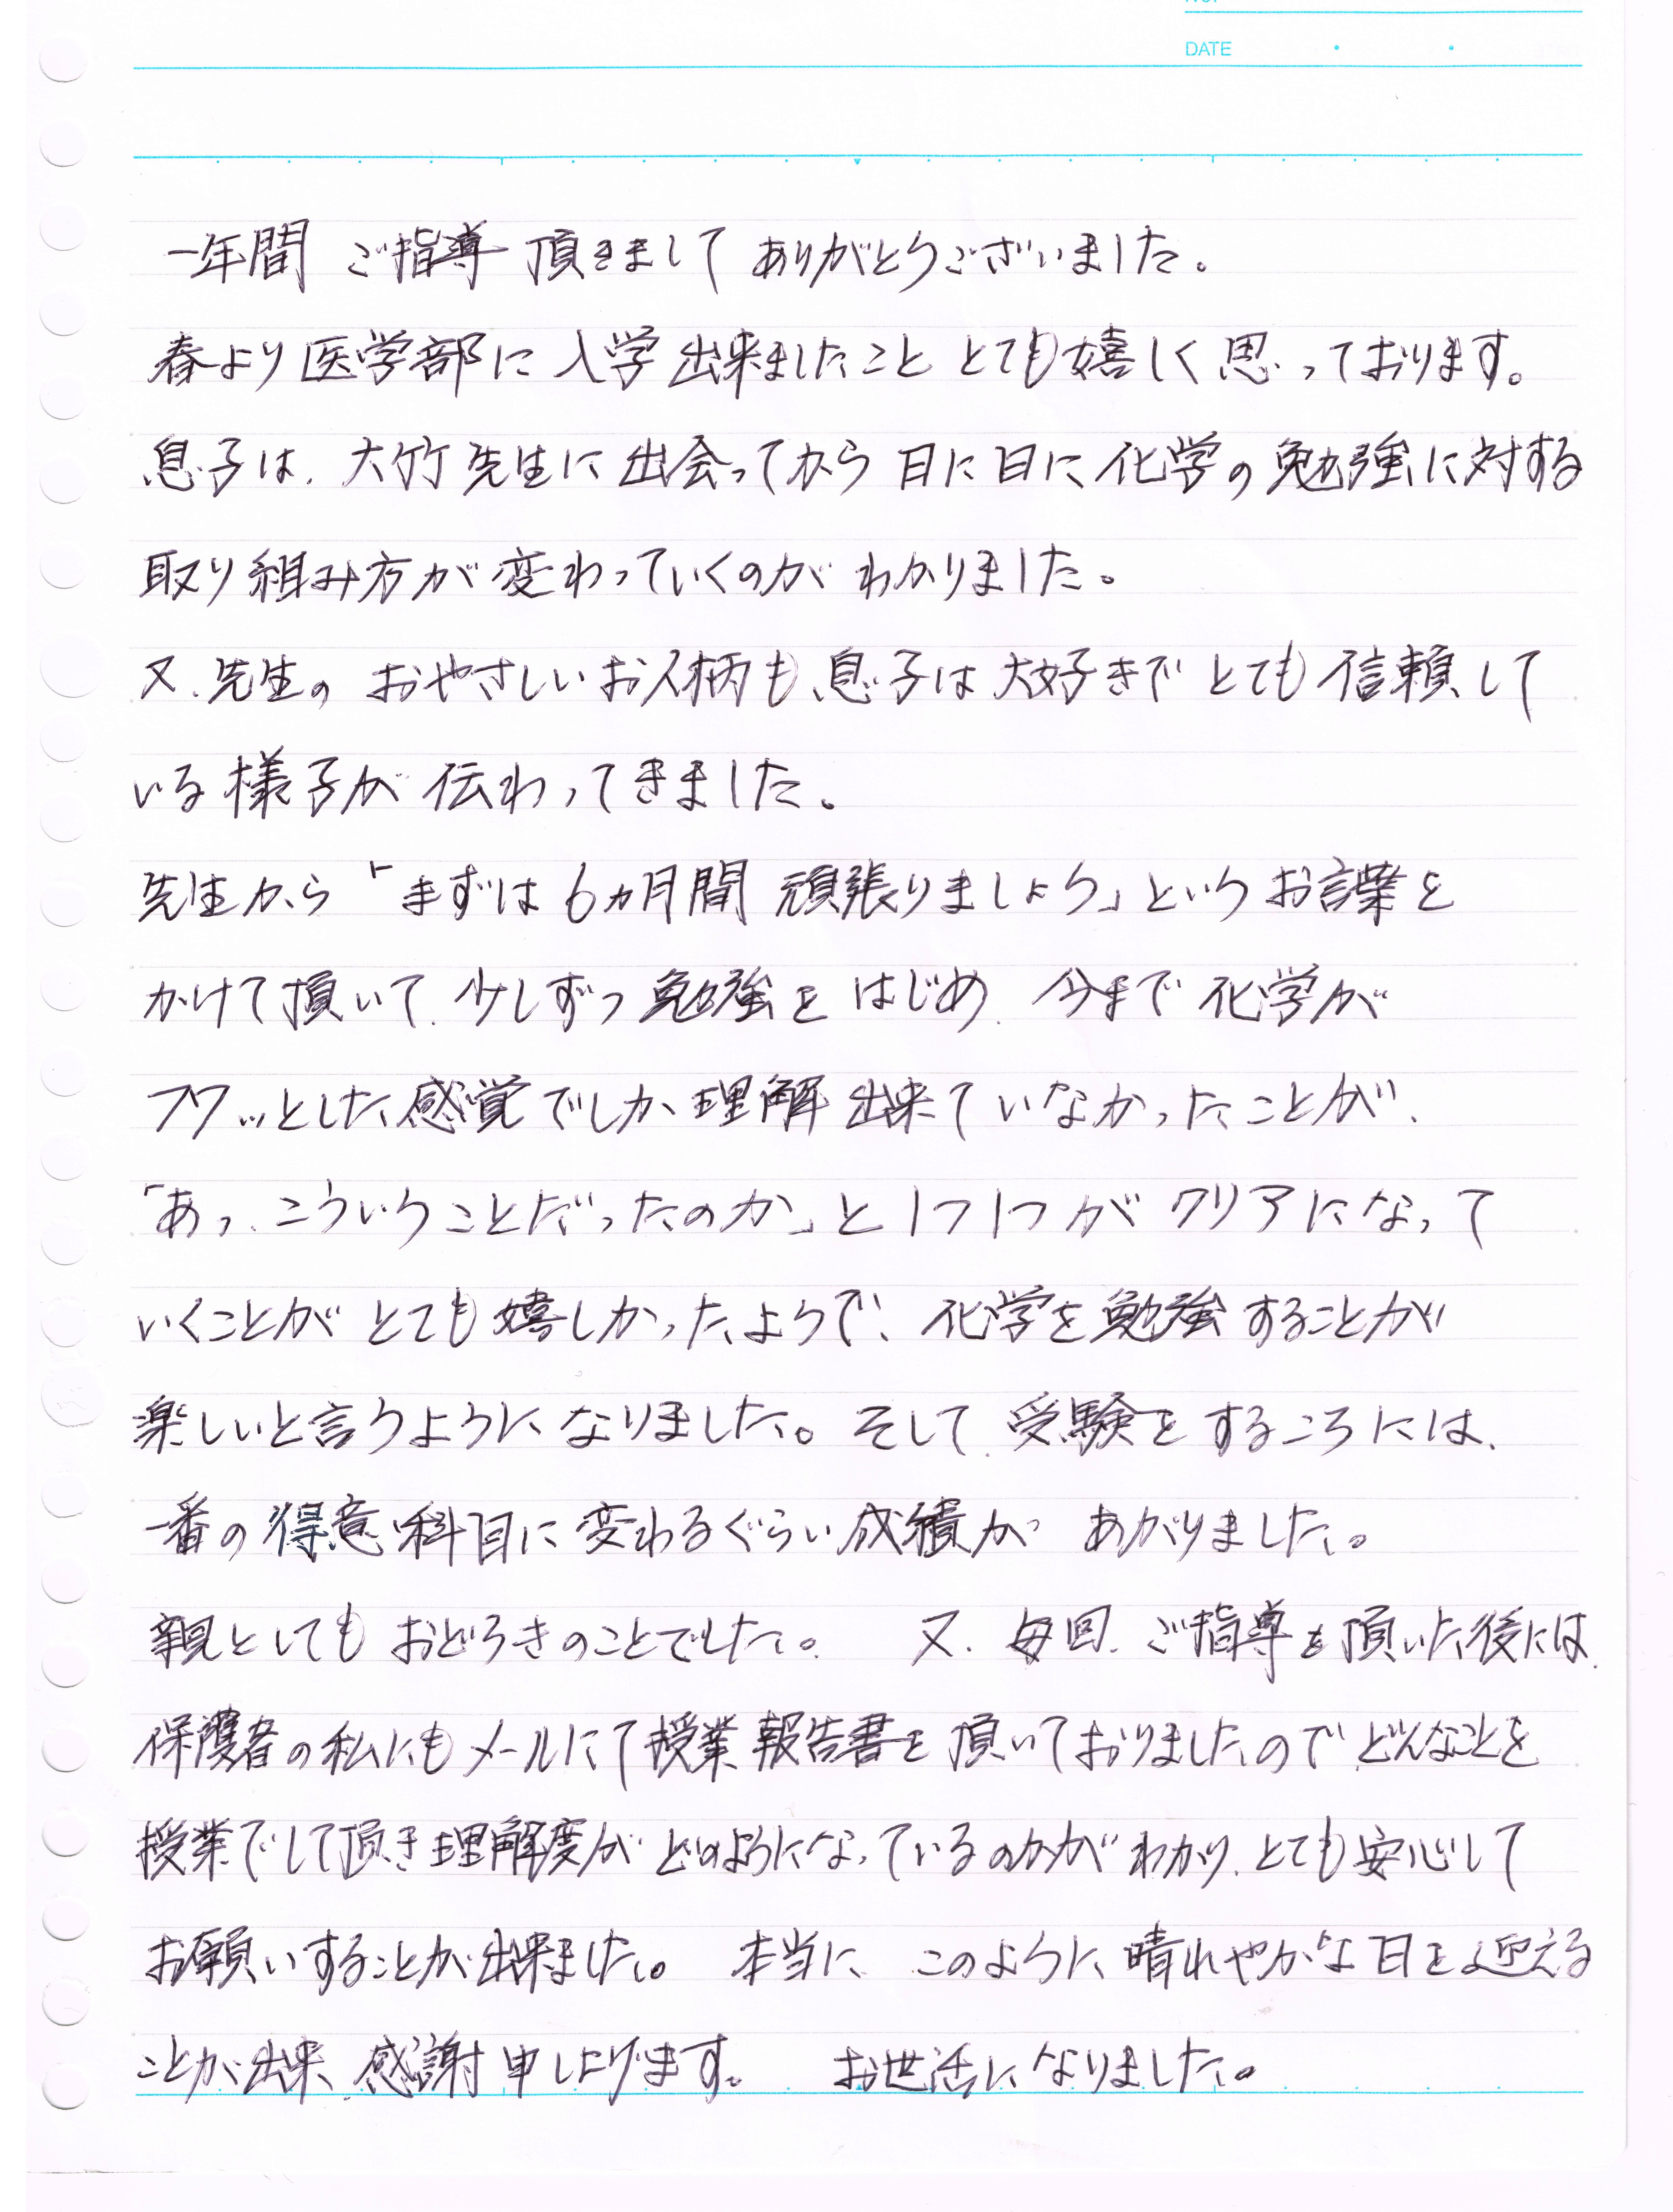 DATE
一年間 ご指導頂きまして ありがとうございました。
春より医学部に入学出来ましたこと とても嬉しく思っております。
息子は、大竹先生に出会ってから日に日に化学の勉強に対する
取り組み方が変わっていくのが わかりました。
又、先生の おやさしいお人柄も、息子は大好きで とても信頼して
いる様子が伝わってきました。
先生から「まずは6ヵ月間 頑張りましょう」というお言葉を
かけて頂いて、少しずつ勉強を はじめ、今まで化学が
フワッとした感覚でしか理解出来ていなかったことが、
「あっ、こういうことだったのか」と1つ1つが クリアになって
いくことが とても嬉しかったようで、化学を勉強することが
楽しいと言うようになりました。そして、受験をするころには、
一番の得意科目に変わるぐらい成績が あがりました。
親としても おどろきのことでした。 又、毎回、ご指導を頂いた後には、
保護者の私にもメールにて授業報告書を頂いておりましたので どんなことを
授業でして頂き理解度が どのようになっているのかが わかり、とても安心して
お願いすることが出来ました。 本当に このように晴れやかな日を迎える
ことが出来、感謝申し上げます。 お世話になりました。